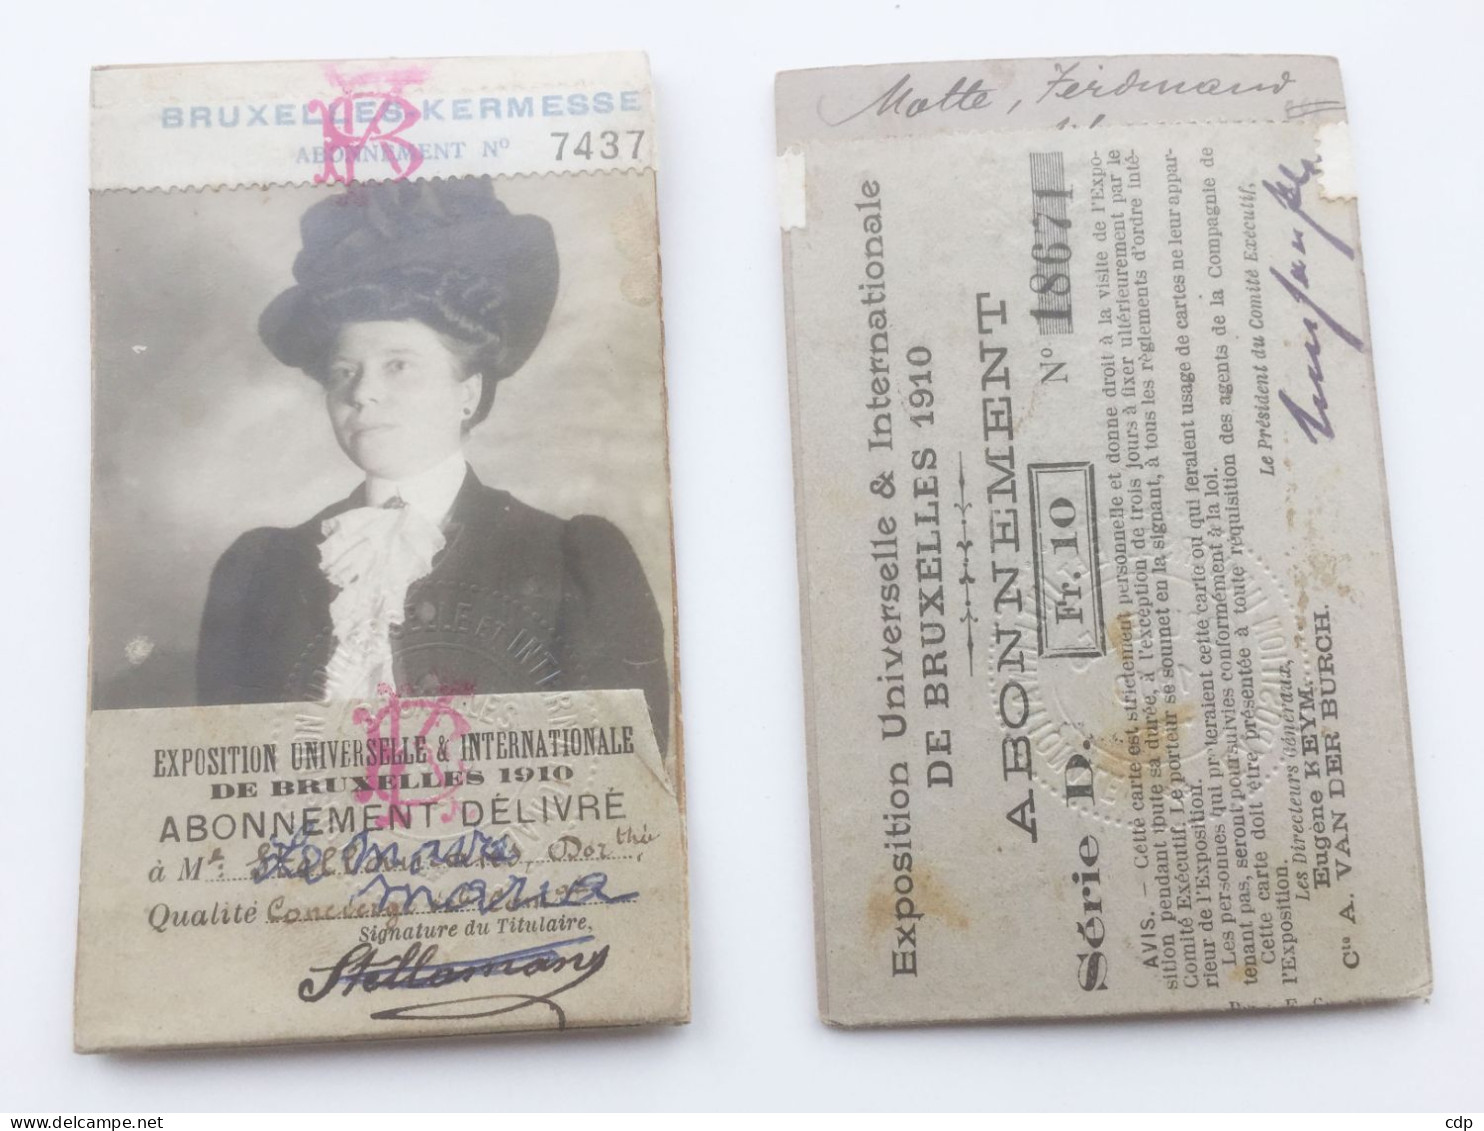 BRUXELLES-KERMESSE
ABONNEMENT Nº 7437
EXPOSITION UNIVERSELLE & INTERNATIONALE
DE BRUXELLES 1910
ABONNEMENT DÉLIVRÉ
à M
Qualité Concierge
maria
Signature du Titulaire,
Motte, Ferdinand
Exposition Universelle & Internationale
DE BRUXELLES 1910
ABONNEMENT
Série D. Fr. 10 Nº 18671
AVIS. — Cette carte est strictement personnelle et donne droit à la visite de l'Expo-
sition pendant toute sa durée, à l'exception de trois jours à fixer ultérieurement par le
Comité Exécutif. Le porteur se soumet en la signant, à tous les règlements d'ordre inté-
rieur de l'Exposition.
Les personnes qui prêteraient cette carte ou qui feraient usage de cartes ne leur appar-
tenant pas, seront poursuivies conformément à la loi.
Cette carte doit être présentée à toute réquisition des agents de la Compagnie de
l'Exposition.
Les Directeurs Généraux,
Le Président du Comité Exécutif,
Eugène KEYM.
Cte A. VAN DER BURCH.
Delcampe.net
cdp